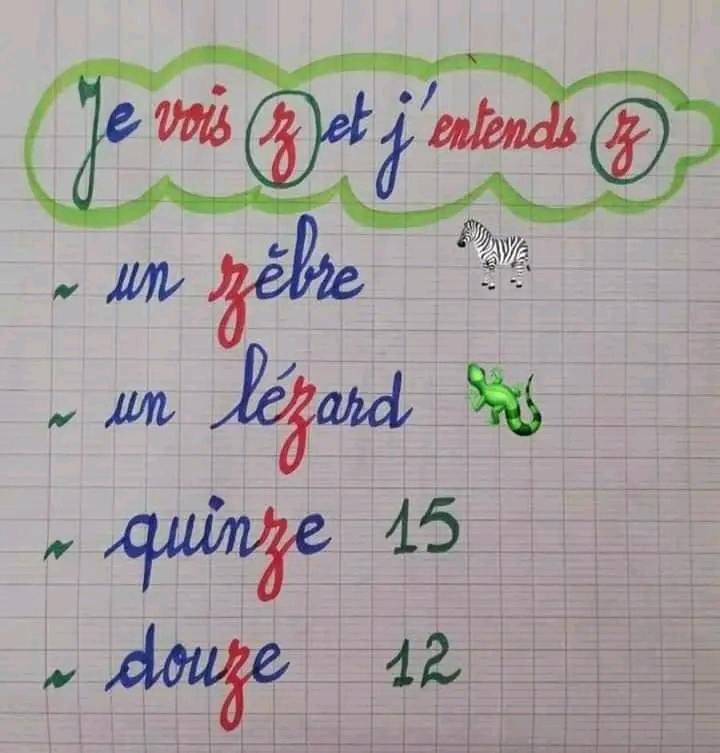 Je vois z et j'entends z
~ un zèbre
~ un lézard
~ quinze 15
~ douze 12